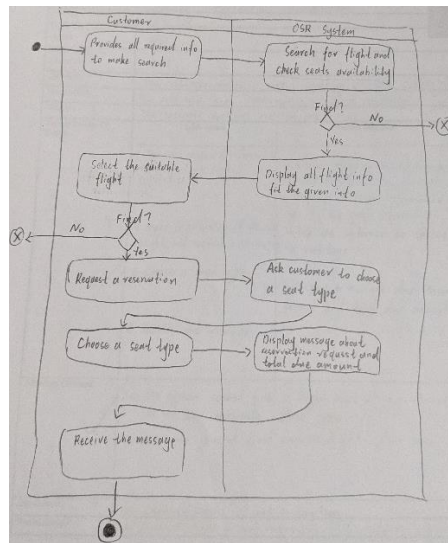 Customer
OSR System
Provides all required info
to make search
Search for flight and
check seats availability
Find?
No
Yes
Select the suitable
flight
Display all flight info
fit the given info
Find?
No
Yes
Request a reservation
Ask customer to choose
a seat type
Choose a seat type
Display message about
reservation request and
total due amount
Receive the message